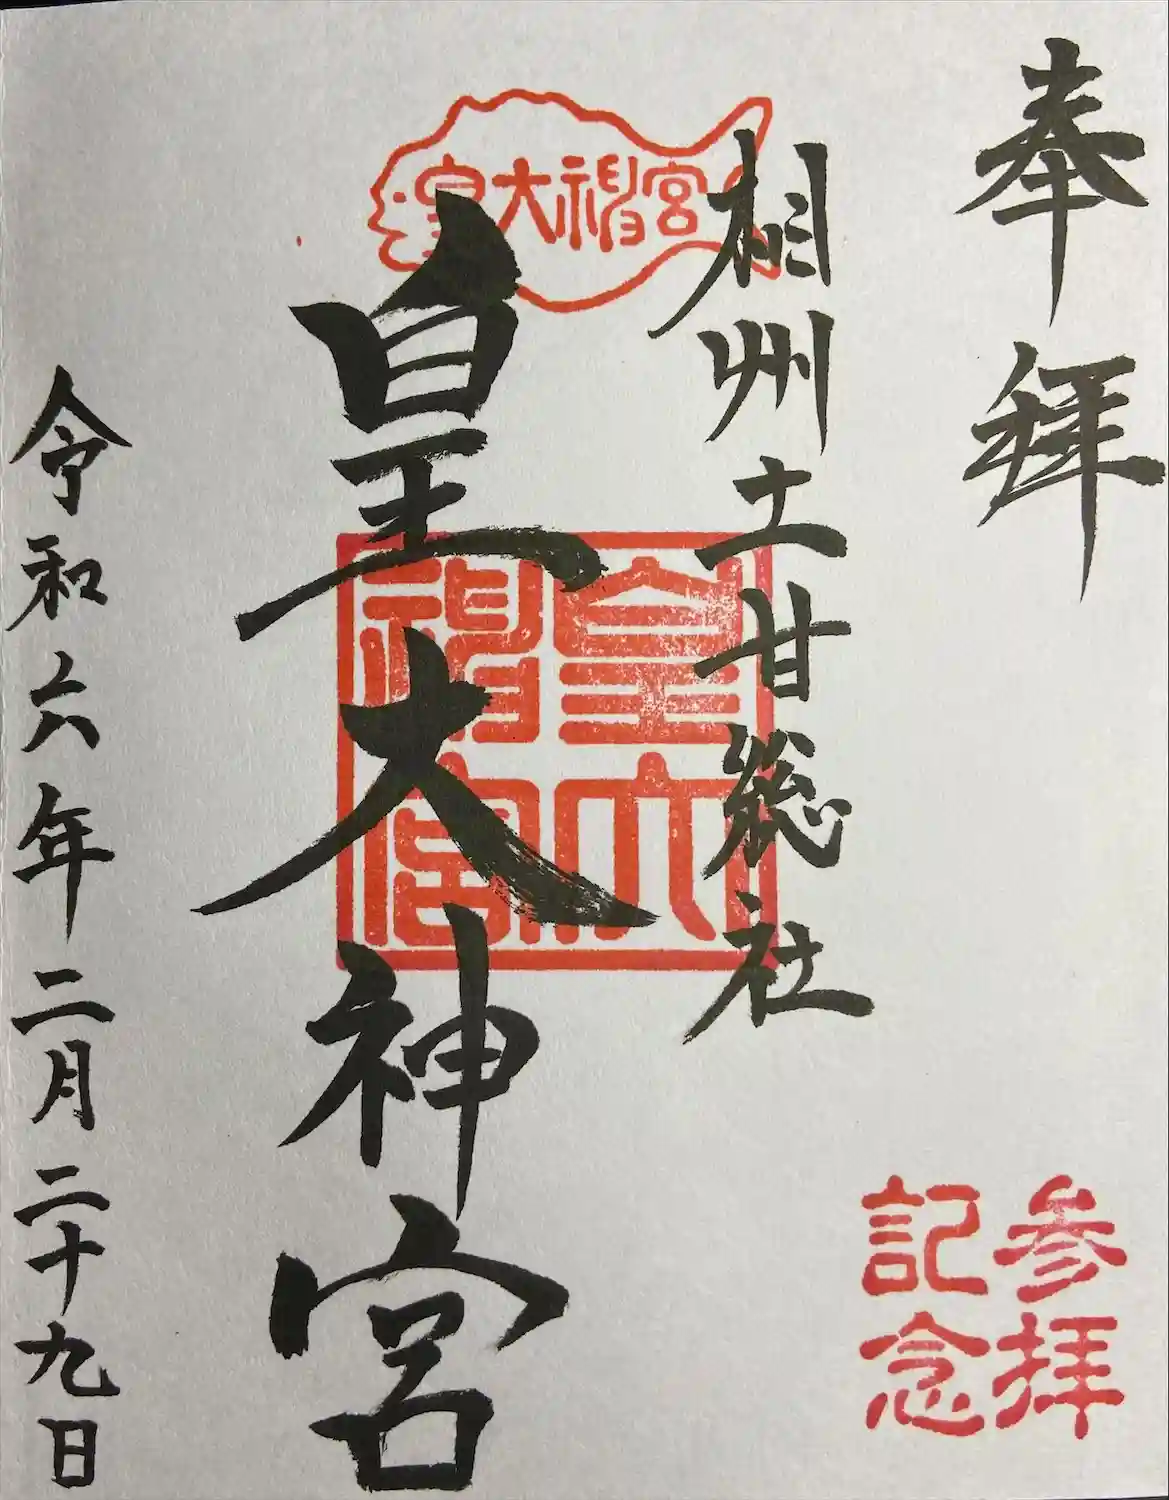 奉拝
相州土甘総社
皇大神宮
皇大神宮
皇大神宮
令和六年二月二十九日
参拝
記念